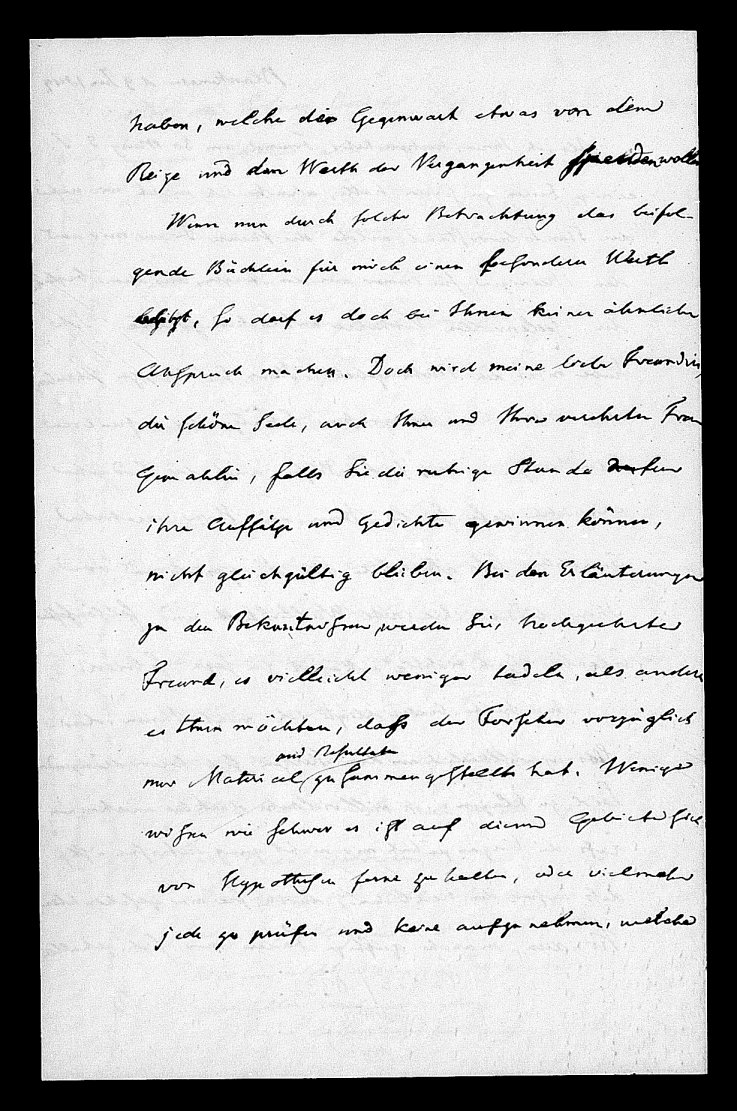 haben, welche die Gegenwart etwas von dem
Reize und dem Werth der Vergangenheit spenden wollen
Wenn nun durch solche Betrachtung das beifol-
gende Büchlein für mich einen besonderen Werth
besitzt, so darf es doch bei Ihnen keinen ähnlichen
Anspruch machen. Doch wird meine liebe Freundin,
die schöne Seele, auch Ihnen und Ihrer verehrten Frau
Gemahlin, falls Sie die ruhige Stunde fur
ihre Aufsätze und Gedichte gewinnen können,
nicht gleichgültig bleiben. Bei den Erläuterungen
zu den Bekentnissen werden Sie, hochgeehrter
Freund, es vielleicht weniger tadeln, als andere
es thun möchten, dass der Forscher vorzüglich
und Resultate
nur Material zusammengestellt hat. Wenige
wissen wie schwer es ist auf diesem Gebiete sich
von Hypothesen ferne zu halten, oder vielmehr
jede zu prüfen und keine aufzunehmen, welche